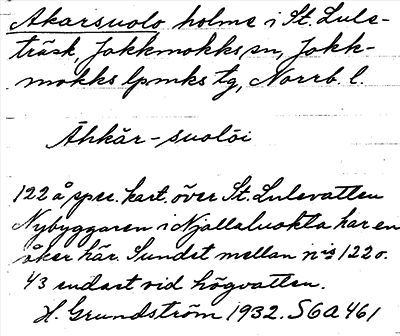 Akarsuolo, holme i St. Lule-
träsk, Jokkmokks sn, Jokk-
mokks lpmks tg, Norrb. l.
Āhkăr-suolōi
122 å spec. kart. över St. Lulevatten
Nybyggaren i Njallaluokta har en
åker här. Sundet mellan n:is 122 o.
43 endast vid högvatten.
H. Grundström 1932. S6a461